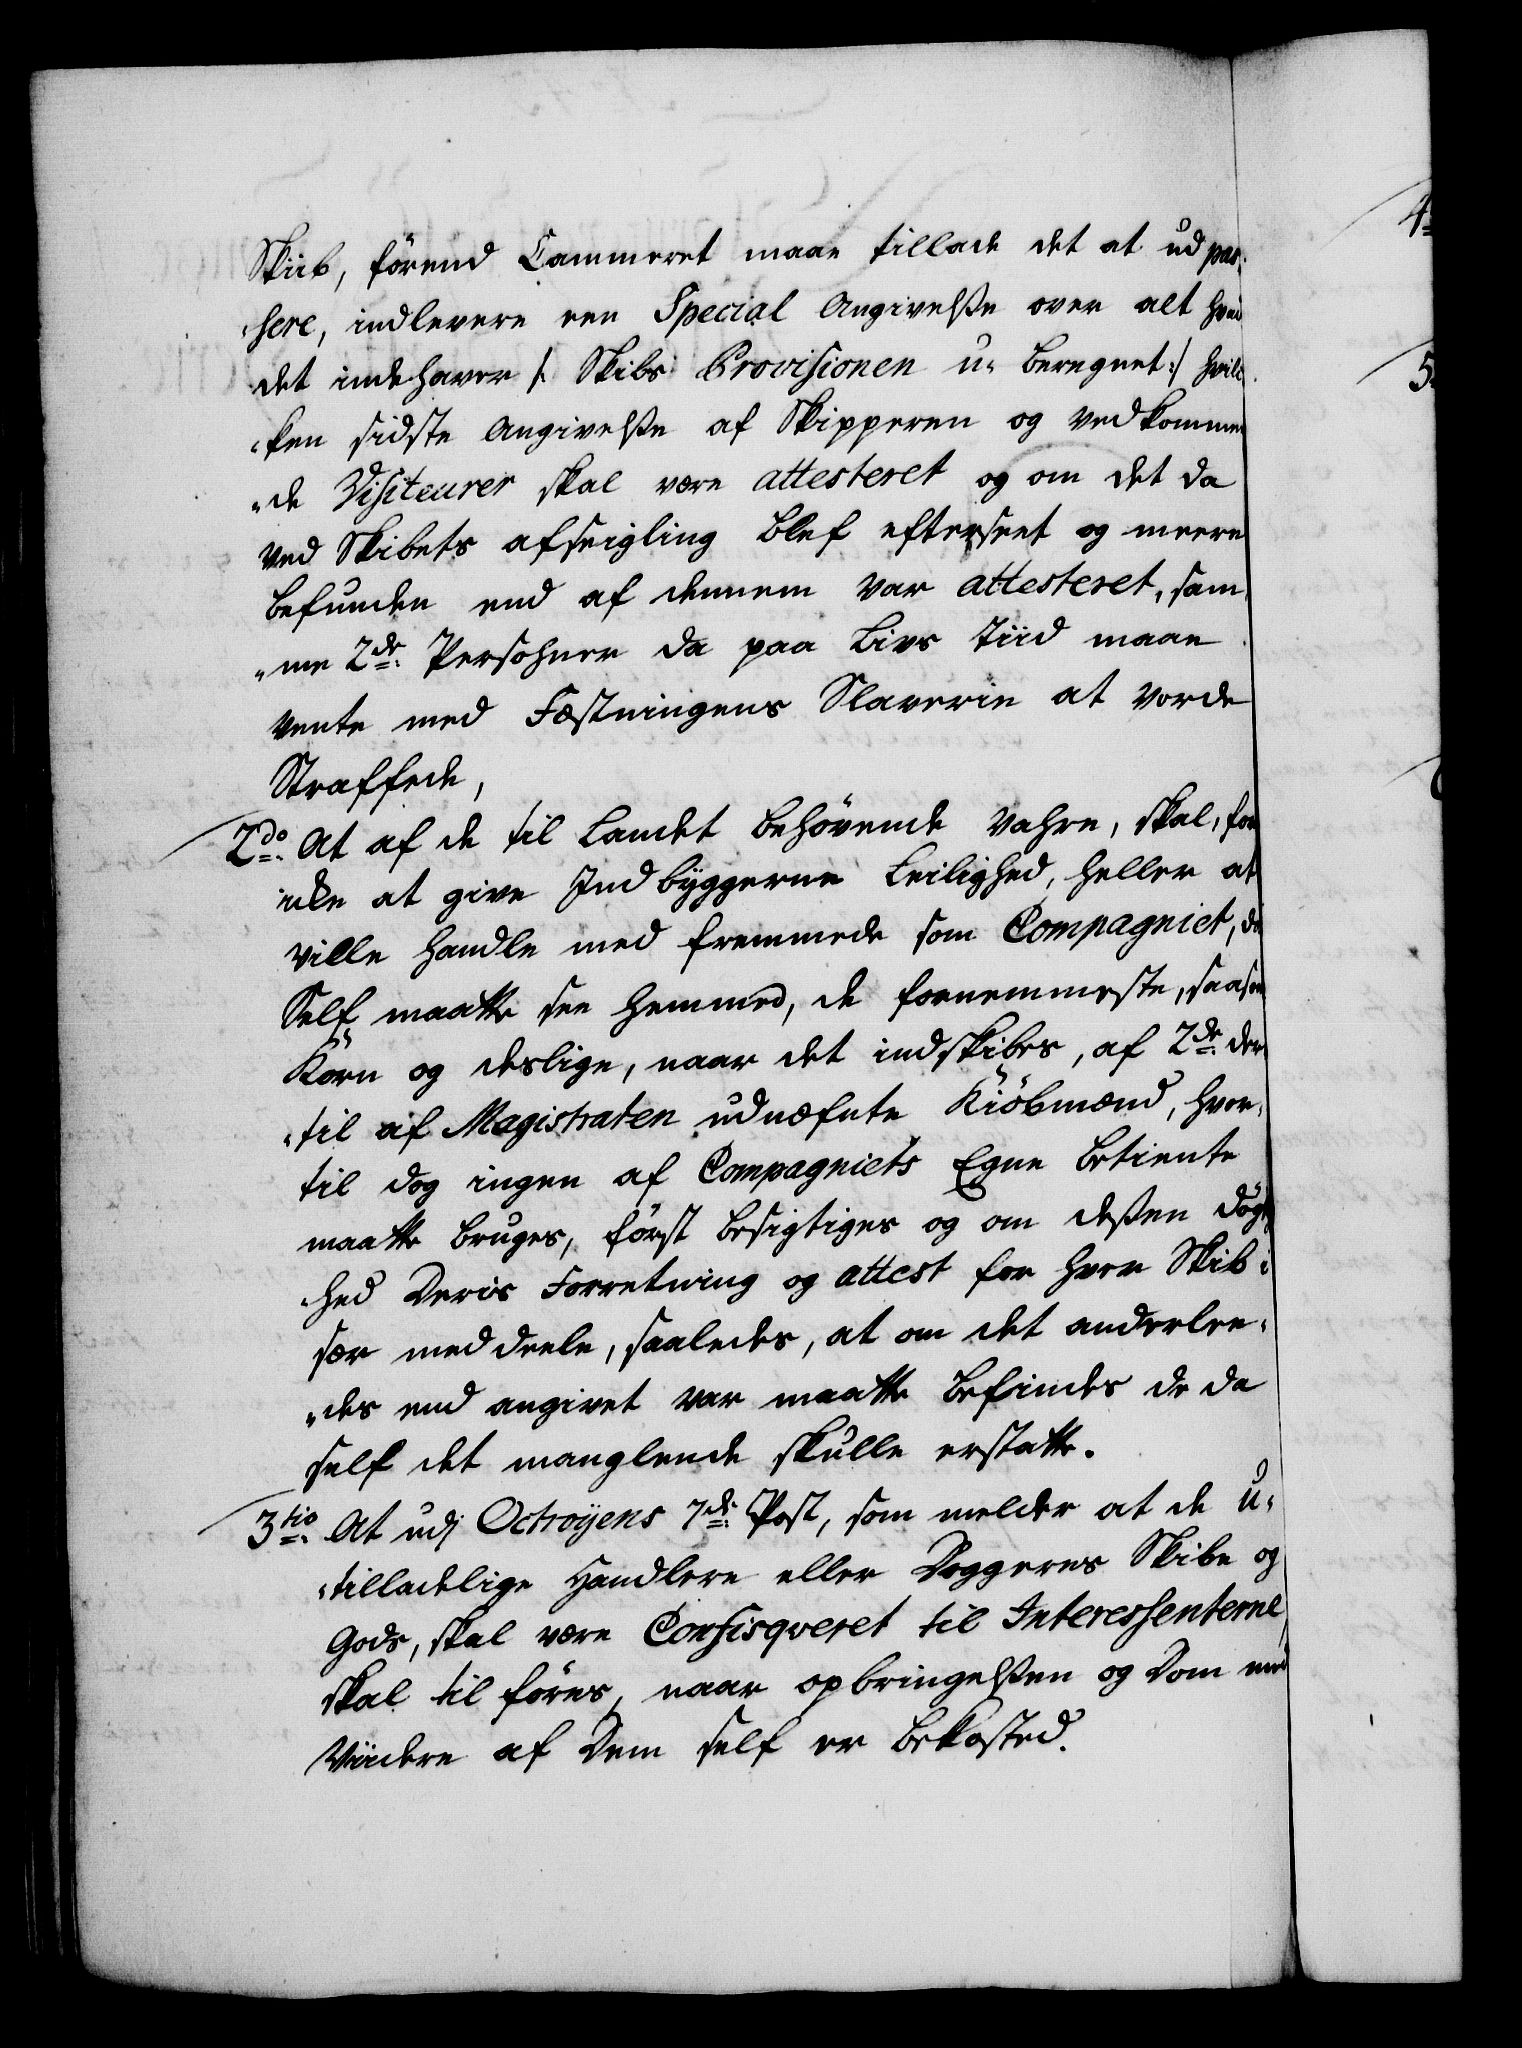 Skiib, förend Cammeret maae tillade det at ud pas¬
sere, indlevere een Special Angivelse over alt hvad
det indehaver /: Skibs Provisionen u- beregnet :/ hvil¬
ken sidste Angivelse af Skipperen og vedkommen
de Visiteurer skal være attesteret og om det da
ved Skibets afseigling blef efterseet og meere
befunden end af dennem var attesteret, sam
me 2de Persohner da paa Livs Tiid maae
vente med Fæstningens Slaverie at vorde
Straffede,
2do At af de til Landet behövende Vahre, skal, for
icke at give Indbyggerne Leilighed, heller at
ville handle med fremmede som Compagniet, de
Self maatte see hemmed, de fornemmeste, saasom
Korn og deslige, naar det indskibes, af 2de der
til af Magistraten udnæfnte Kiöbmænd, hvor¬
til dog ingen af Compagniets Egne betiente
maatte bruges, först besigtiges og om deßen dög
hed Deris Forretning og attest for hver Skib i
sær meddeele, saaledes, at om det anderlee¬
des end angivet var maatte befindes de da
self det manglende skulle erstatte.
3tio At udj Octroÿens 7de Post, som melder at de u-
tilladelige Handlere eller Doggeres Skibe og
Gods, skal være Confisqveret til Interessenterne,
skal til föres, naar opbringelsen og Dom med
Viidere af Dem self er bekosted.
4
5